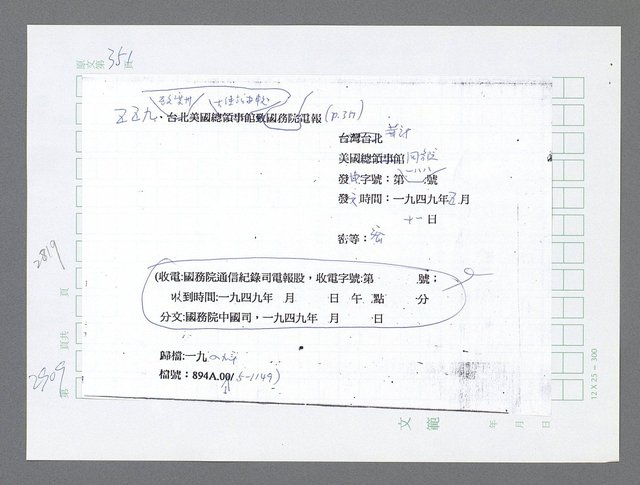 原文第351頁
五五九、台北美國總領事館致國務院電報(p.311)
台灣台北
美國總領事館
發電字號:第一八八號
發文時間:一九四九年五月
十一日
密等:
(收電:國務院通信紀錄司電報股,收電字號:第 號;
收到時間:一九四九年 月 日 午 點 分
分文:國務院中國司,一九四九年 月 日
歸檔:一九
檔號:894A.00/5-1149)
2819
頁
頁共
2909
第
文範
年 月 日
12 X 25 - 300